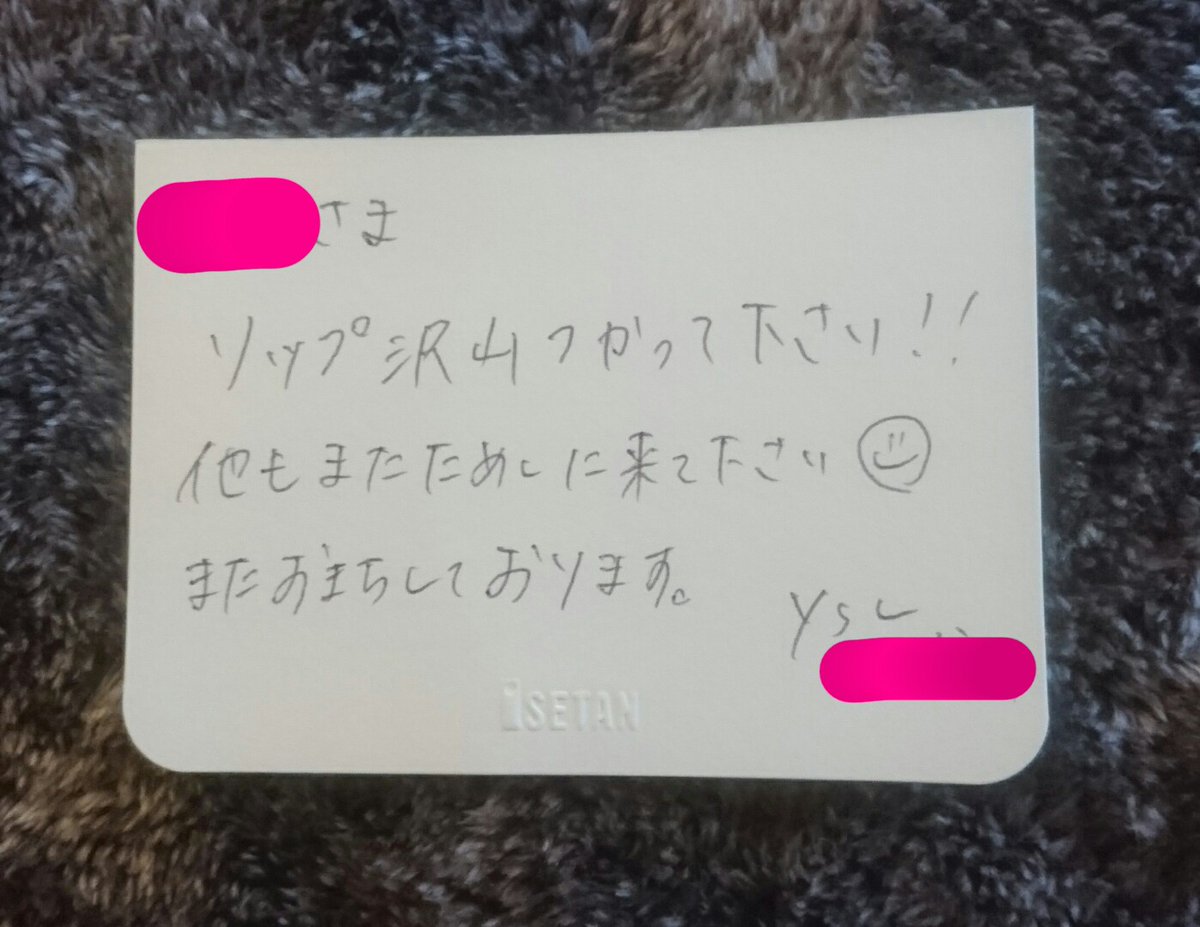 さま
リップ沢山つかって下さい!!
他もまたためしに来て下さい
またお待ちしております。
YSL
iSETAN